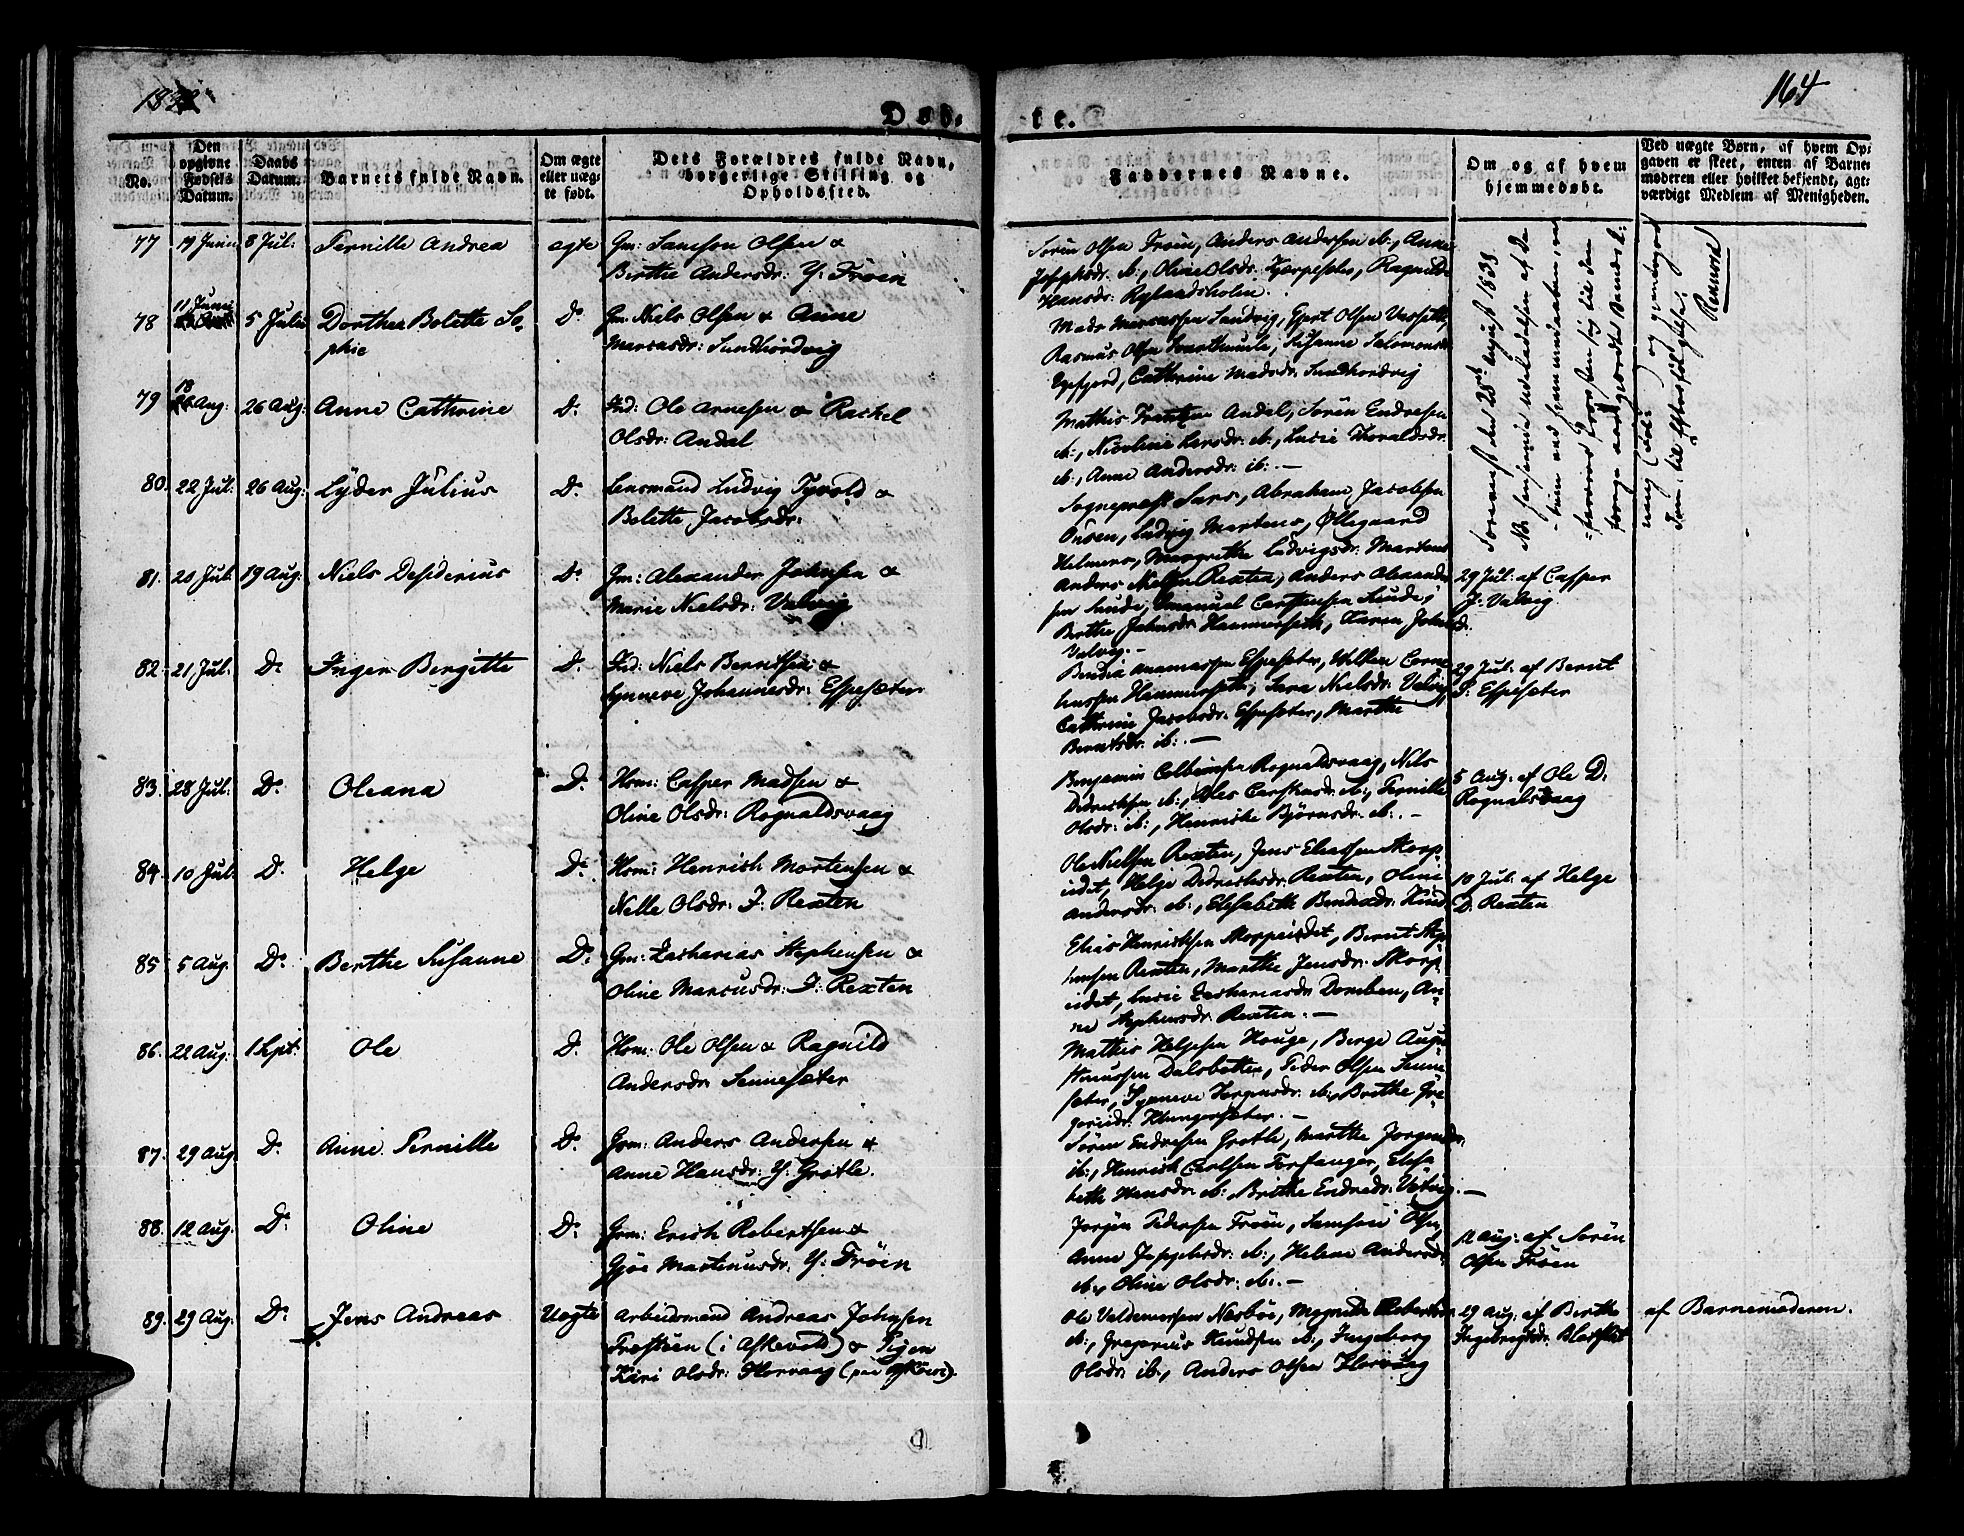 183
164
Døb-
te.
No.
Den opgivne Fødsels Datum.
Daabs Datum.
Barnets fulde Navn.
Om ægte eller uæg- te født.
Dets Forældres fulde Navn, borgerlige Stilling og Opholdssted.
Faddernes Navne.
Om og af hvem hjemmedøbt.
Ved uægte Børn, af hvem Op- gaven er skeet, enten af Barne- moderen eller hvilket bekjendt, agt- værdigt Medlem af Menigheden.
77 19 Juni 8 Jul: Pernille Andrea ægte Gm: Samson Olsen &
Birthe Andersdr: Y: Frøen
Sørin Olsen Frøin, Anders Andersen ib:, Anne
Jesephsdr: ib:, Oline Olsdr:
Hansdr: Rylandsholm.
78 11 Junii 5 Julii Dorthea Bolette So-
phie
D: Gm: Niels Olsen & Anne
Marcusdr: Sundhordvig
Mads Marcussen Sandvig, Gjert Olsen
Rasmus Olsen Svarthumle, Susanne Salomonsdr
Egefjord, Cathrine Madsdr: Sundhordvig
79 18 Aug: 26 Aug: Anne Cathrine D: Ind: Ole Arnesen & Rachel
Olsdr: Andal
Mathis Andal, Sørin Endresen
ib:, Nicoline Larsdr: ib:, Lucie Thoraldsdr:
ib:, Anne Andersdr: ib: —
80. 22 Jul: 26 Aug: Lyder Julius D: Lensmand Ludvig Tyvold &
Bolette Jacobsdr:
Sognepræst Sars, Abraham Jacobsen
Ludvig Martens, Øllegaard
Helmers, Margrethe Ludvigsdr: Martens
81. 20 Jul: 19 Aug: Niels Desiderius D: Gm: Alexander Johnsen &
Marie Nielsdr: Valvig
Anders Nielsen Rexten, Anders Alexander-
sen Linde, Emanuel Carstensen Linde,
Berthe Johnsdr: Hammerseth, Karen Johnsd:
Valvig. —
29 Jul: af Casper
J: Valvig
82. 21 Jul: D: Inger Bergitte D: Ind: Niels Berntsen &
Synneve Johannesdr: Espeseter
Espeseter, Willem Corne-
liussen Hammerseth, Sara Nielsdr: Valvig,
Cathrine Jacobsdr: Espeseter, Marthe
Berntsdr: ib: —
29 Jul: af Bernt
P: Espesæter
83. 28 Jul: D: Oleana D: Hsm: Casper Madsen &
Oline Olsdr: Rognaldsvaag
Benjamin Colbeinsen Rognaldsvaag, Nils
Didriksen ib:, Ales Carstensdr: ib:, Pernille
Olsdr: ib:, Henricke Bjørnsdr: ib:. —
5 Aug: af Ole D.
Rognalsvaag
84. 10 Jul: D: Helge D: Hsm: Henrich Mortensen &
Nelle Olsdr: I: Rexten
Ole Nielsen Rexten, Jens Eliassen Skorp-
eidet, Helje Didrichsdr: Rexten, Oline
Andersdr: ib:, Elisabeth Bendixdr: Kind
10 Jul: af Helge
D: Rexten
85 5 Aug: D: Berthe Susanne D: Gm: Zacharias Stephensen &
Oline Marcusdr: I: Rexten
Elias Henrichsen Skorpeidet, Bernt Step-
hensen Rexten, Marthe Jensdr: Skorp-
eidet, Lucie Zachariasdr: Domben, An-
ne Stephensdr: Rexten. —
86. 22 Aug: 1 Sept: Ole D. Hsm: Ole Olsen & Ragnild
Andersdr: Sennesæter
Mathis Helgesen Houge, Børge Augu-
stinussen Dalsbotten, Peder Olsen Senne-
sæter, Synneve Jørgensdr: ib:, Berthe Gre-
goridr: Klungersæter. —
87. 29 Aug. D: Anne Pernille D: Gm: Anders Andersen &
Anne Hansdr: Y: Grotle.
Sørin Endresen Grotle, Marthe Jørgensdr.
ib:, Henrich Carlsen Torfanger, Elisa-
beth Hansdr: ib: Brithe Endredr: . —
88. 12 Aug: D: Oline D: Gm: Erich Robertsen &
Gjøe Martinusdr: Y: Frøen
Jørgin Pedersen Frøin, Samson Olsen,
Anne Josephsdr: ib:, Helene Andersdr:
ib:, Oline Olsdr: ib:. —
12 Aug: af Sørin
Olsen Frøen
89. 29 Aug: D: Jens Andreas Uægte Arbeidsmand Andreas Johnsen
(i Askevold) & Pigen
Kari Olsdr: Horvaag (paa ).
Ole Valdemarsen Nesbøe, Magnilde Robertsdr:
ib:, Gregorius Knudsen ib:, Ingeborg
Olsdr: ib:, Anders Olsen Horvaag
29 Aug: af Birthe
Ingebrigtsdr:
af Barnemoderen.
Forevist den 28de August 1838